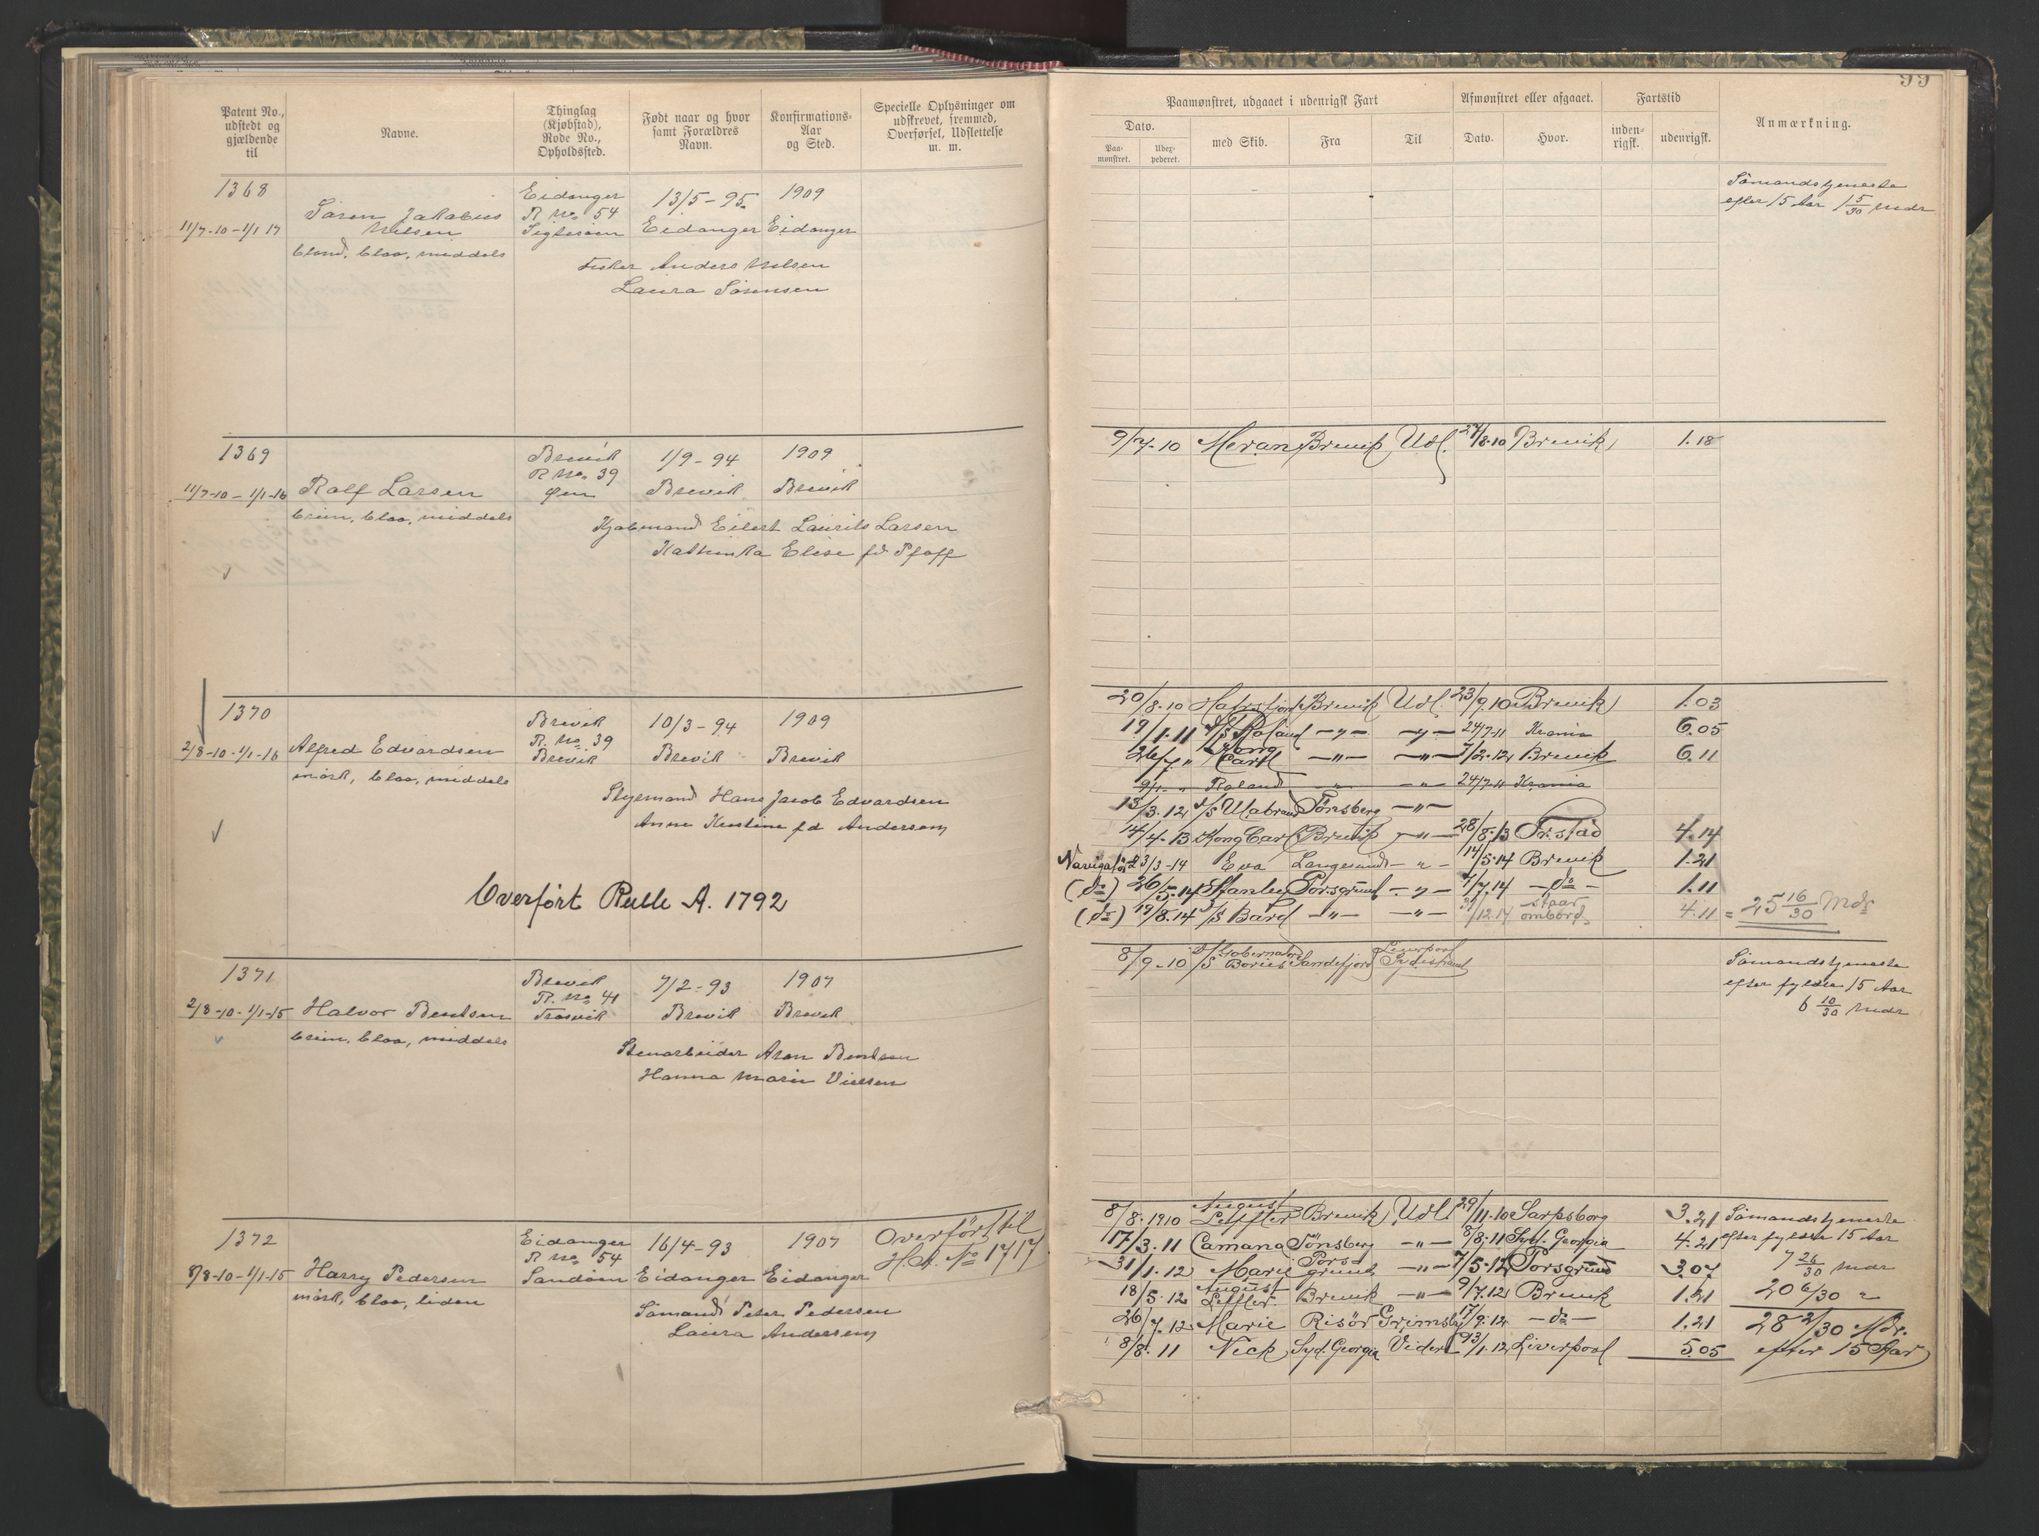 99
Patent No., udstedt og gjældende til
Navne.
Thinglag (Kjøbstad), Rode No., Opholdssted.
Født naar og hvor samt Forældres Navn.
Konfirmations-Aar og Sted.
Specielle Oplysninger om udskrevet, fremmed, Overførsel, Udslettelse m. m.
Paamønstret, udgaaet i udenrigsk Fart
Afmønstret eller afgaaet.
Fartstid
Anmærkning.
Dato.
Paa-mønstret.
med Skib.
Fra
Til
Dato.
Hvor.
inden-rigsk.
udenrigsk.
1368
11/7-10-1/1 17
Søren Jakobius Nilsen
blond, blaa, middels
Eidanger
R No. 54
13/5-95
Eidanger
1909
Eidanger
Fisker Anders Nilsen
Laura Sørensen
Sømandstjeneste
efter 15 Aar 1 5/30 Mdr
1369
11/7-10-1/1-16
Rolf Larsen
brun, blaa, middels
Brevik
R No. 39
Øen
1/9-94
Brevik
1909
Brevik
Kjøbmand Eilert Laurits Larsen
Kathinka Elise fd Pfaff
9/7-10 Meran Brevik Udl. 27/8-10 Brevik 1.18
1370
2/8-10-1/1-16
Alfred Edvardsen
mørk, blaa, middels
Brevik
R. No. 39
Brevik
10/3-94
Brevik
1909
Brevik
Styrmand Hans Jacob Edvardsen
Anne Kristine fd Andersen
Overført Rulle A. 1792
20/8-10 Brevik Udl. 23/9-10 Brevik 1.03
19/1-11 D/S Roland -"- -"- 24/7-11 Krania 6.05
26/7 " Kong Carl -"- -"- 7/2-12 Brevik 6.11
9/1- " Roland -"- -"- 24/7-11 Krania
13/3.12 Tønsberg -"-
14/4-13 Kong Carl Brevik -"- 28/8-13 Fr.stad 4.14
23/3-14 Eva Langesund -"- 14/5-14 Brevik 1.21
(do) 26/5-14 Stanley Porsgrund -"- 7/7.14 -do- 1.11
(do) 19/8.14 D/S Bård -"- -"- 31/12.14 staar ombord 4.11 = 25 16/30 Mdr
1371
2/8-10-1/1-15
Halvor Bentsen
brun, blaa, middels
Brevik
R. No 41
Trosvik
7/2-93
Brevik
1907
Brevik
Stenarbeider Aron Bentsen
Hanna Marie
8/9-10 D/S Gobernadore Bories Sandefjord Liverpool
Sømandstjeneste
efter fyldte 15 Aar
6 10/30 Mdr
1372
8/8-10-1/1-15
Harry Pedersen
mørk, blaa, liden
Eidanger
R No. 54
Sandøen
16/4-93
Eidanger
1907
Eidanger
Overført til
H.A. No 1717
Sømand Peter Pedersen
Laura Andersen
8/8-1910 August Leffler Brevik Udl 29/11-10 Sarpsborg 3.21
17/3.11 Camana Tønsberg -"- 8/8-11 Syd. Georgia 4.21
31/1.12 Marie Porsgrund -"- 7/5-12 Porsgrund 3.07
18/5.12 August Leffler. Brevik -"- 9/7.12 Brevik 1.21
26/7.12 Marie Risör Grimsby 17/9.12 -do- 1.21
8/8.11 Neck Syd. Georgia 1.12 Liverpool 5.05
Sømandstjeneste
efter fyldte 15 Aar
7 26/30 Mdr
20 6/30 "
28 2/30 Mdr.
efter 15 Aar